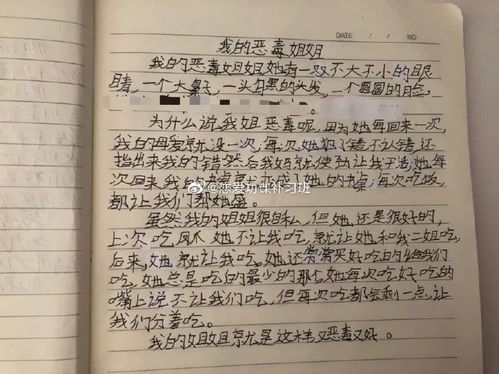 DATE / / NO
我的恶毒姐姐
我的恶毒姐姐,她有一双不大不小的眼
睛,一个大鼻子,一头乌黑的头发,一个圆圆的脸,
为什么说我姐恶毒呢,因为她每回来一次,
我的母爱就没一次,每次她犯了错不认错还
指出来我的错然后我妈就使劲让我干活,她每
次回来我的书桌就变成了她的书桌,每次吃饭
都让我们帮她盛
虽然我的姐姐很自私,但她还是很好的,
上次吃凤爪她不让我吃,就让她和我二姐吃,
后来,她就让我吃。她还常常买好吃的给我们
吃,她总是吃的最少的那个,她每次吃好吃的
嘴上说不让我们吃,但每次吃都会剩一点,让
我们分着吃。
我的姐姐就是这样又恶毒又好。
@恋爱功课补习班